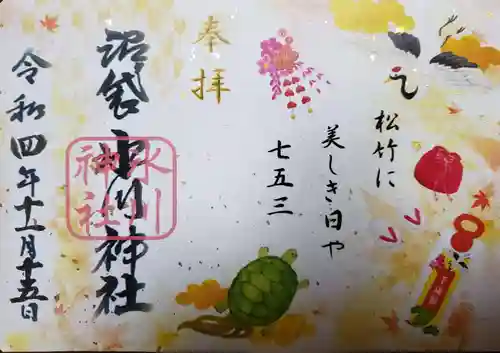 松竹に
美しき日や
七五三
奉拝
沼袋氷川神社
氷川
神社
令和四年十一月十五日